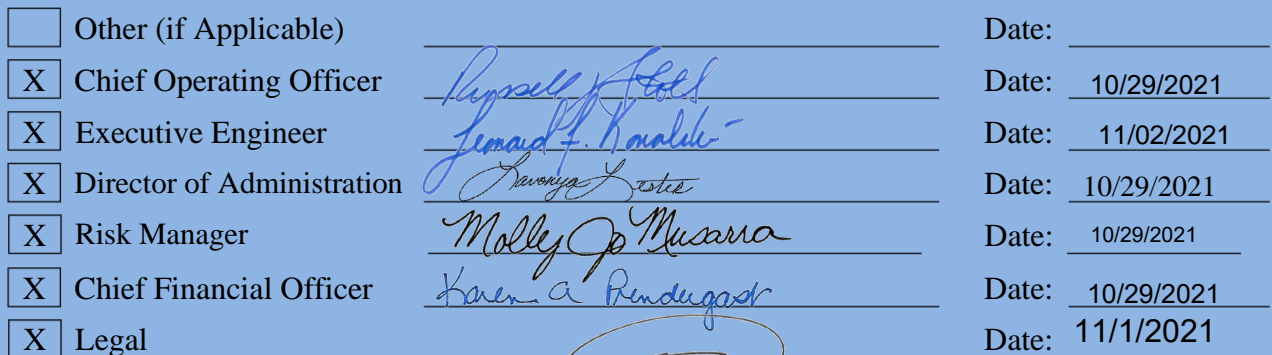 Other (if Applicable) Date:
X Chief Operating Officer Russell Date: 10/29/2021
X Executive Engineer Leonard F. Date: 11/02/2021
X Director of Administration Lavonya Lester Date: 10/29/2021
X Risk Manager Molly Jo Musarra Date: 10/29/2021
X Chief Financial Officer Karen A Prendergast Date: 10/29/2021
X Legal Date: 11/1/2021